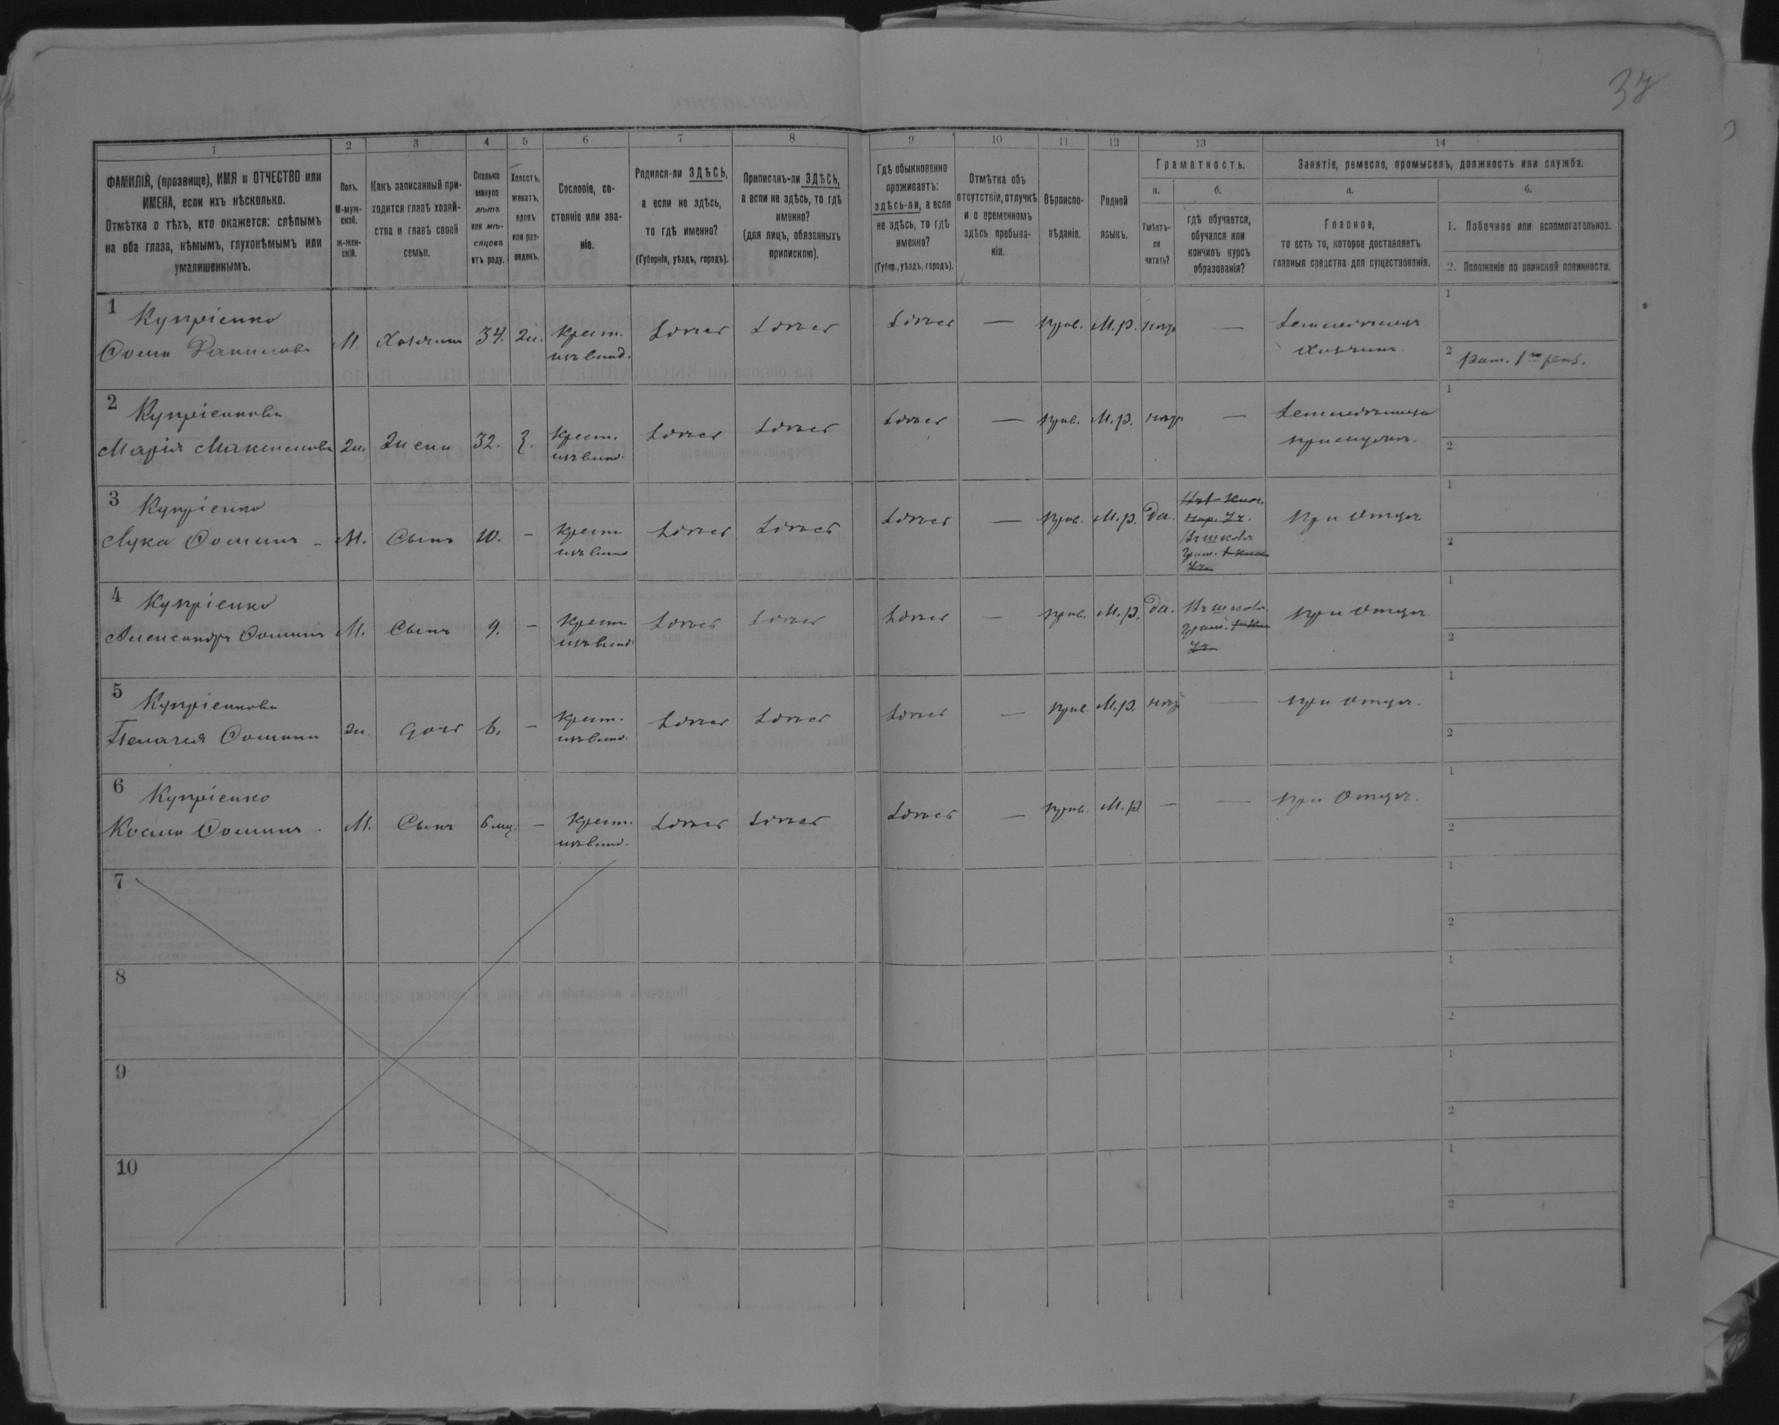 37
1 2 3 4 5 6 7 8 9 10 11 12 13 14
ФАМИЛІЯ, (прозвище), ИМЯ и ОТЧЕСТВО или
ИМЕНА, если ихъ нѣсколько.
Отмѣтка о тѣхъ, кто окажется: слѣпымъ
на оба глаза, нѣмымъ, глухонѣмымъ или
умалишеннымъ.
Полъ.
М-муж-
ской.
ж-жен-
скій.
Какъ записанный при-
ходится главѣ хозяй-
ства и главѣ своей
семьи.
Сколько
минуло
лѣтъ
или мѣ-
сяцевъ
отъ роду.
Холостъ,
женатъ,
вдовъ
или раз-
веденъ.
Сословіе, со-
стояніе или зва-
ніе.
Родился-ли ЗДѢСЬ,
а если не здѣсь,
то гдѣ именно?
(Губернія, уѣздъ, городъ).
Приписанъ-ли ЗДѢСЬ,
а если не здѣсь, то гдѣ
именно?
(для лицъ, обязанныхъ
припискою).
Гдѣ обыкновенно
проживаетъ:
здѣсь-ли, а если
не здѣсь, то гдѣ
именно?
(Губер., уѣздъ, городъ).
Отмѣтка объ
отсутствіи, отлучкѣ
и о временномъ
здѣсь пребыва-
ніи.
Вѣроиспо-
вѣданіе.
Родной
языкъ.
Грамотность.
а.
Умѣетъ-
ли
читать?
б.
гдѣ обучается,
обучался или
кончилъ курсъ
образованія?
Занятіе, ремесло, промыселъ, должность или служба.
а.
Главное,
то есть то, которое доставляетъ
главныя средства для существованія.
б.
1. Побочное или вспомогательное.
2. Положеніе по воинской повинности.
1 Купріенко
Фома Даниловъ М. Хозяинъ 34. Ж. Крест. Здѣсь Здѣсь Здѣсь — Прав. М.р. нѣтъ — Земледѣлецъ
хозяинъ
1
2 Рат. 1го разр.
2 Купріенкова
Марія Максимова Ж. Жена 32. З. Крест. Здѣсь Здѣсь Здѣсь — Прав. М.р. нѣтъ — Земледѣлица
при мужѣ.
1
2
3 Купріенко
Лука Фоминъ М. Сынъ 10. — Крест. Здѣсь Здѣсь Здѣсь — Прав. М.р. Да. Въ школѣ
грам. При отцѣ
1
2
4 Купріенко
Александръ Фоминъ М. Сынъ 9. — Крест. Здѣсь Здѣсь Здѣсь — Прав. М.р. Да. Въ школѣ
грам. При отцѣ
1
2
5 Купріенкова
Пелагея Фомина Ж. Дочь 6. — Крест. Здѣсь Здѣсь Здѣсь — Прав. М.р. нѣтъ — При отцѣ.
1
2
6 Купріенко
Косма Фоминъ М. Сынъ 6 мц. — Крест. Здѣсь Здѣсь Здѣсь — Прав. М.р — — При Отцѣ.
1
2
7
1
2
8
1
2
9
1
2
10
1
2